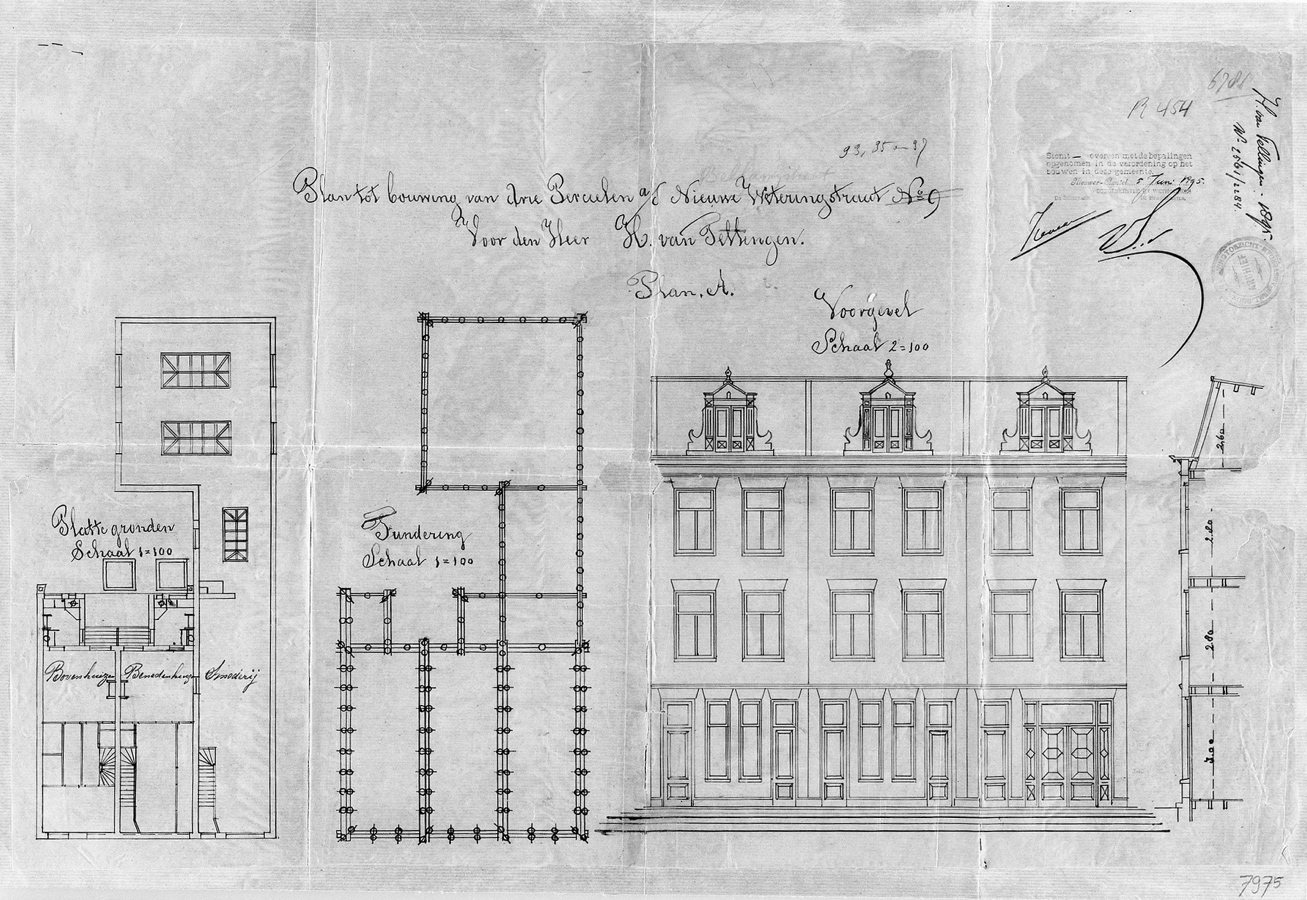 6781
R 454
H. van Tellingen. 1895.
No 2561/2284.
93, 95 - 97
Stemt — overeen met de bepalingen
opgenomen in de verordening op het
bouwen in deze gemeente.
Nieuwer-Amstel 5 Juni 1895.
Plan tot bouwing van drie Perceelen a/d Nieuwe Weteringstraat No 9
Voor den Heer H. van Tettengen.
Plan. A.
Voorgevel
Schaal 2=100
Platte gronden
Schaal 1=100
Fundering
Schaal 1=100
2.60
2.80
2.80
3.00
Bovenhuizen Benedenhuizen Smederij
ARCHIEF
7975